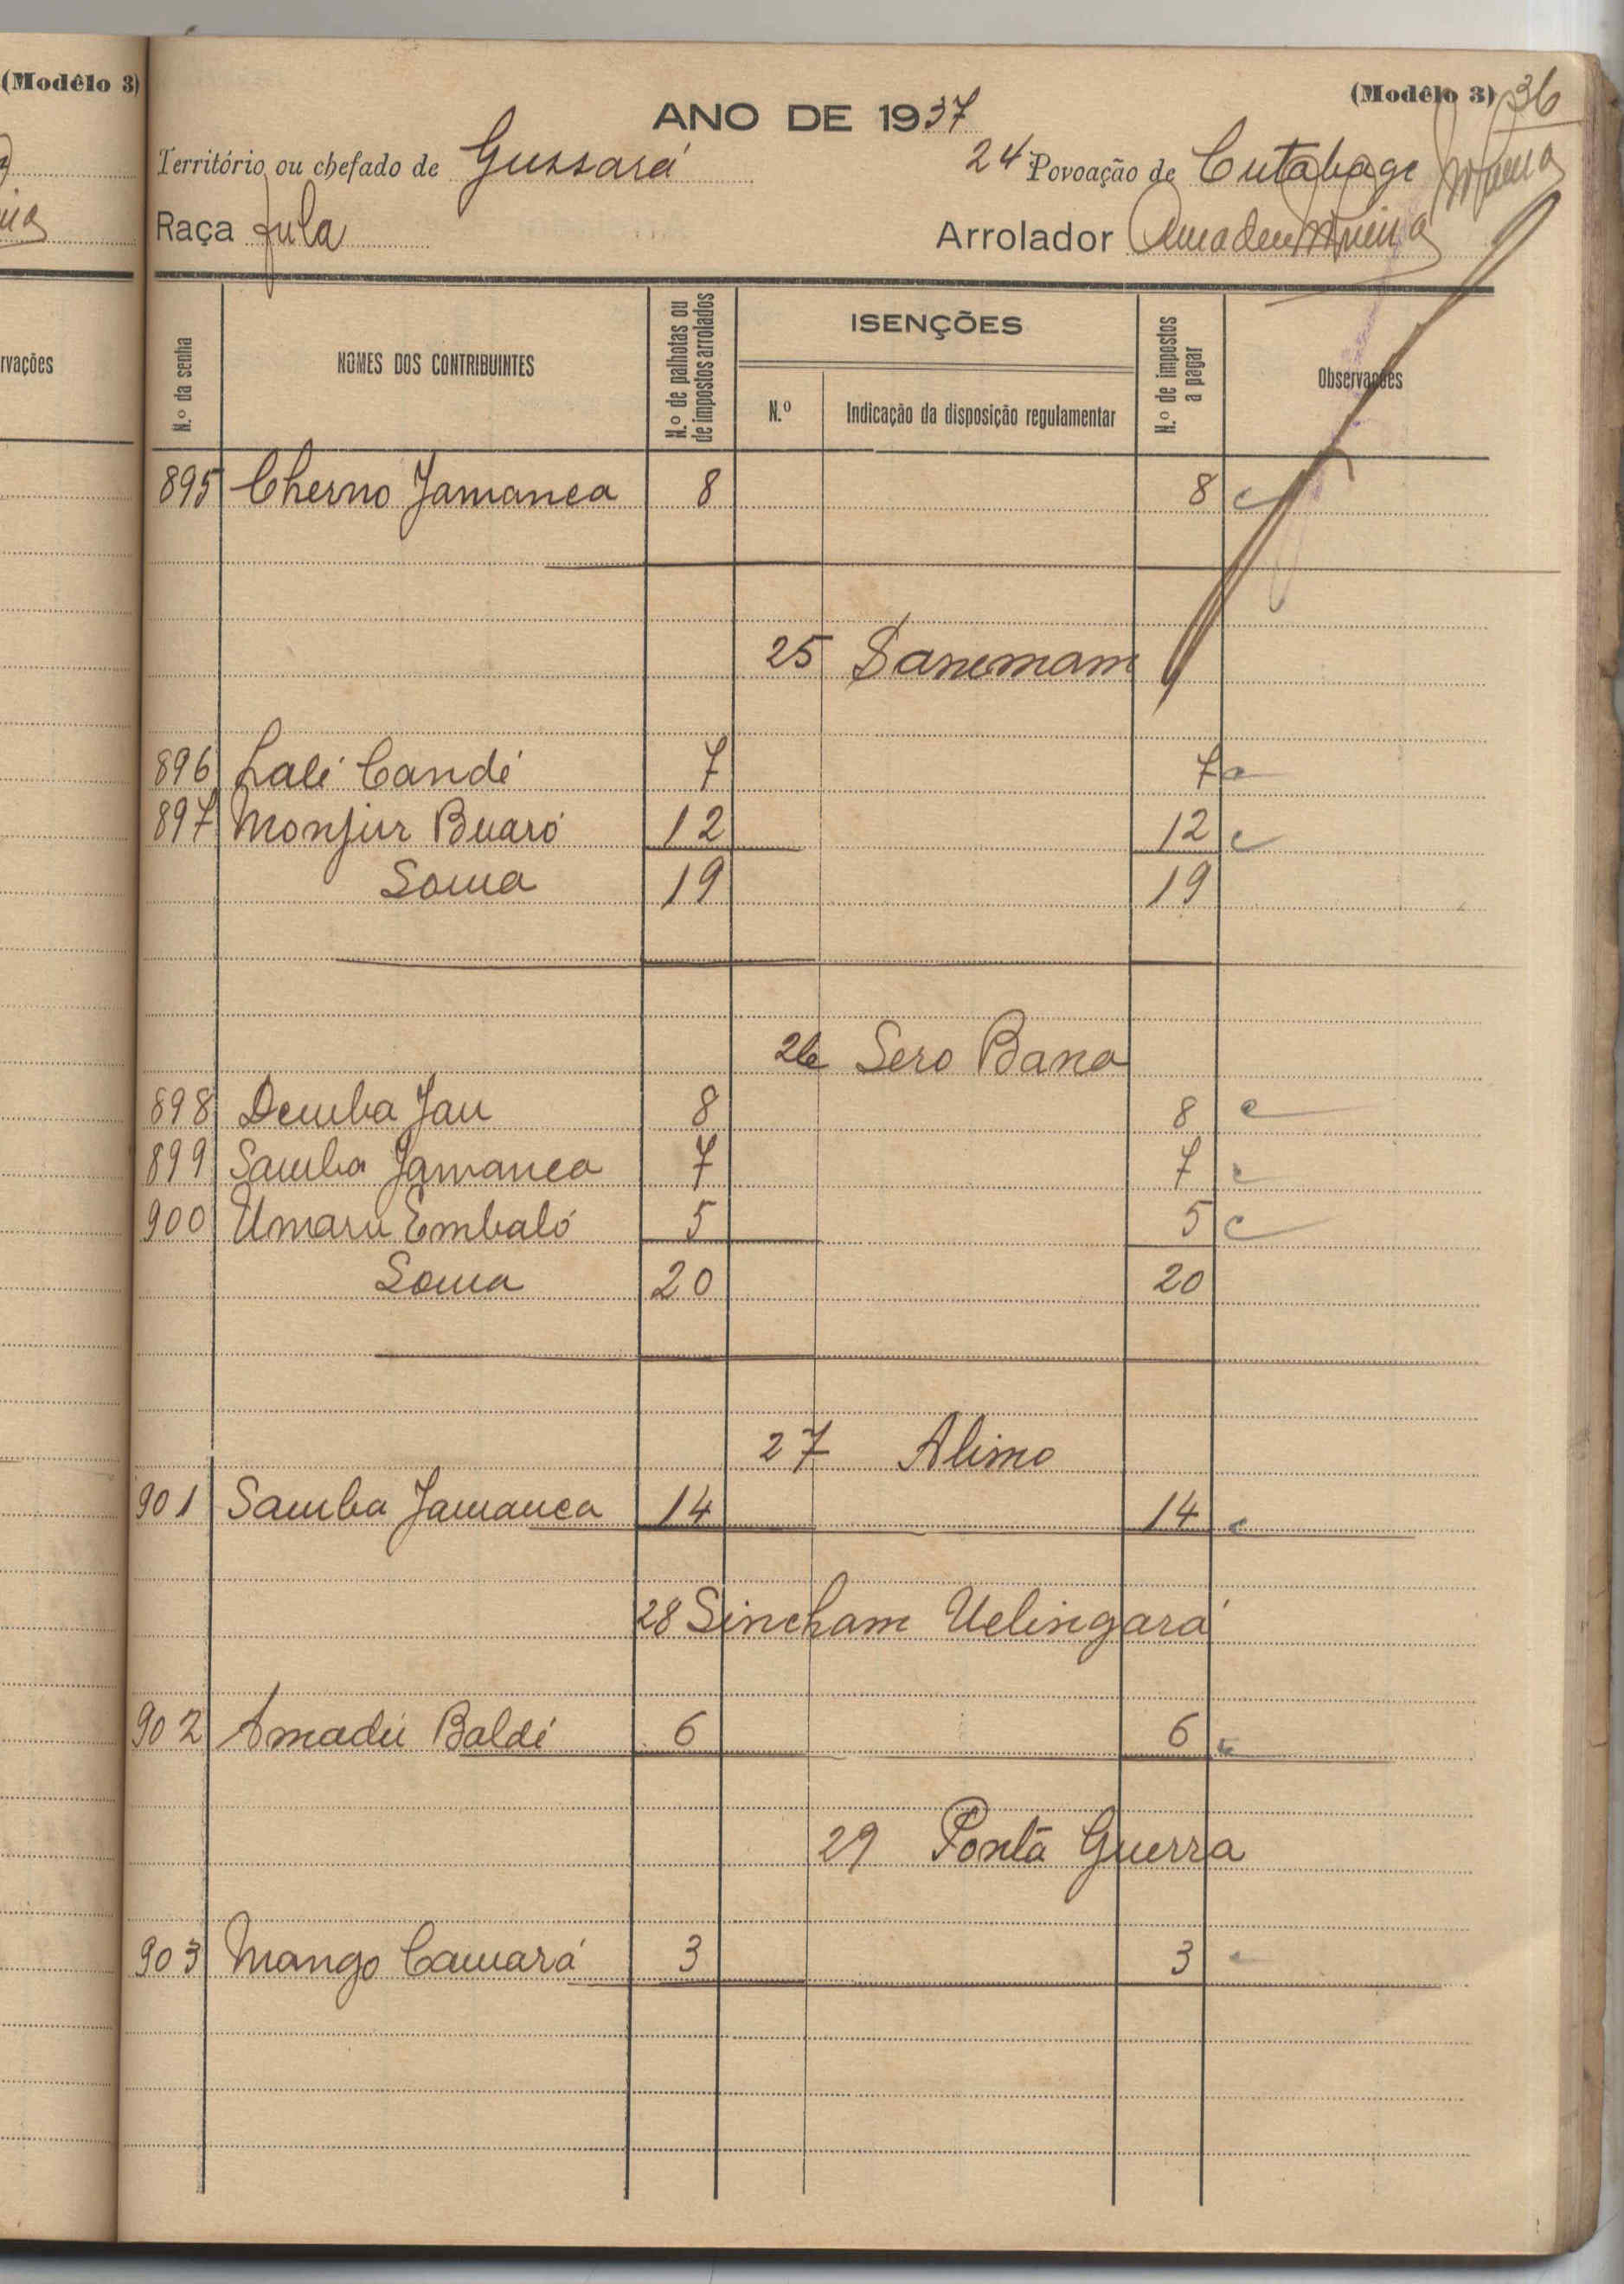 (Modêlo 3)
rvações
(Modêlo 3) 36
ANO DE 1937
Território ou chefado de Gussará 24 Povoação de Cutabage
Raça fula Arrolador Amadeu
N.º da senha NOMES DOS CONTRIBUINTES N.º de palhotas ou de impostos arrolados ISENÇÕES N.º Indicação da disposição regulamentar N.º de impostos a pagar Observações
895 Cherno Jamanca 8 8 c
25 Sanemam
896 Lalé Candé 7 7 c
897 Monjur Buaró 12 12 c
Soma 19 19
26 Sero Bana
898 Demba Jau 8 8 c
899 Samba Jamanca 7 7 c
900 Umaru Embaló 5 5 c
Soma 20 20
27 Alimo
901 Samba Jamanca 14 14 c
28 Sincham Uelingará
902 Amadú Baldé 6 6 c
29 Ponta Guerra
903 Mango Camará 3 3 c